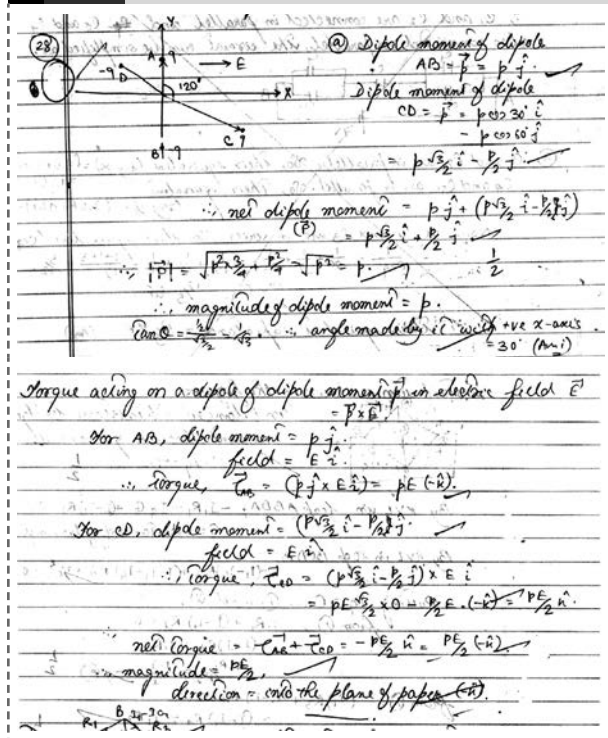 28
Y
A q
-q
D
E
120°
X
C q
B -q
(a) Dipole moment of dipole
AB = p⃗ = p ĵ
Dipole moment of dipole
CD = p⃗ = p cos 30° î
- p cos 60° ĵ
= p √3/2 î - p/2 ĵ
∴ net dipole moment (P⃗) = p ĵ + (p√3/2 î - p/2 ĵ)
= p √3/2 î + p/2 ĵ
∴ |P⃗| = √(p² × 3/4 + p²/4) = √p² = p.
1/2
∴ magnitude of dipole moment = p.
tan θ = (1/2)/(√3/2) = 1/√3. ∴ angle made by it with +ve x-axis
= 30° (Ans)
Torque acting on a dipole of dipole moment p⃗ in electric field E⃗
= p⃗ × E⃗.
For AB, dipole moment = p ĵ.
field = E î.
∴ Torque, τ⃗AB = (p ĵ × E î) = pE (-k̂).
For CD, dipole moment = (p√3/2 î - p/2 ĵ).
field = E î
∴ Torque, τ⃗CD = (p √3/2 î - p/2 ĵ) × E î
= pE √3/2 × 0 - p/2 E. (-k̂) = pE/2 k̂.
∴ net Torque = τ⃗AB + τ⃗CD = - pE/2 k̂ = pE/2 (-k̂).
∴ magnitude = pE/2,
direction = into the plane of paper (-k̂).
B
R1
R2